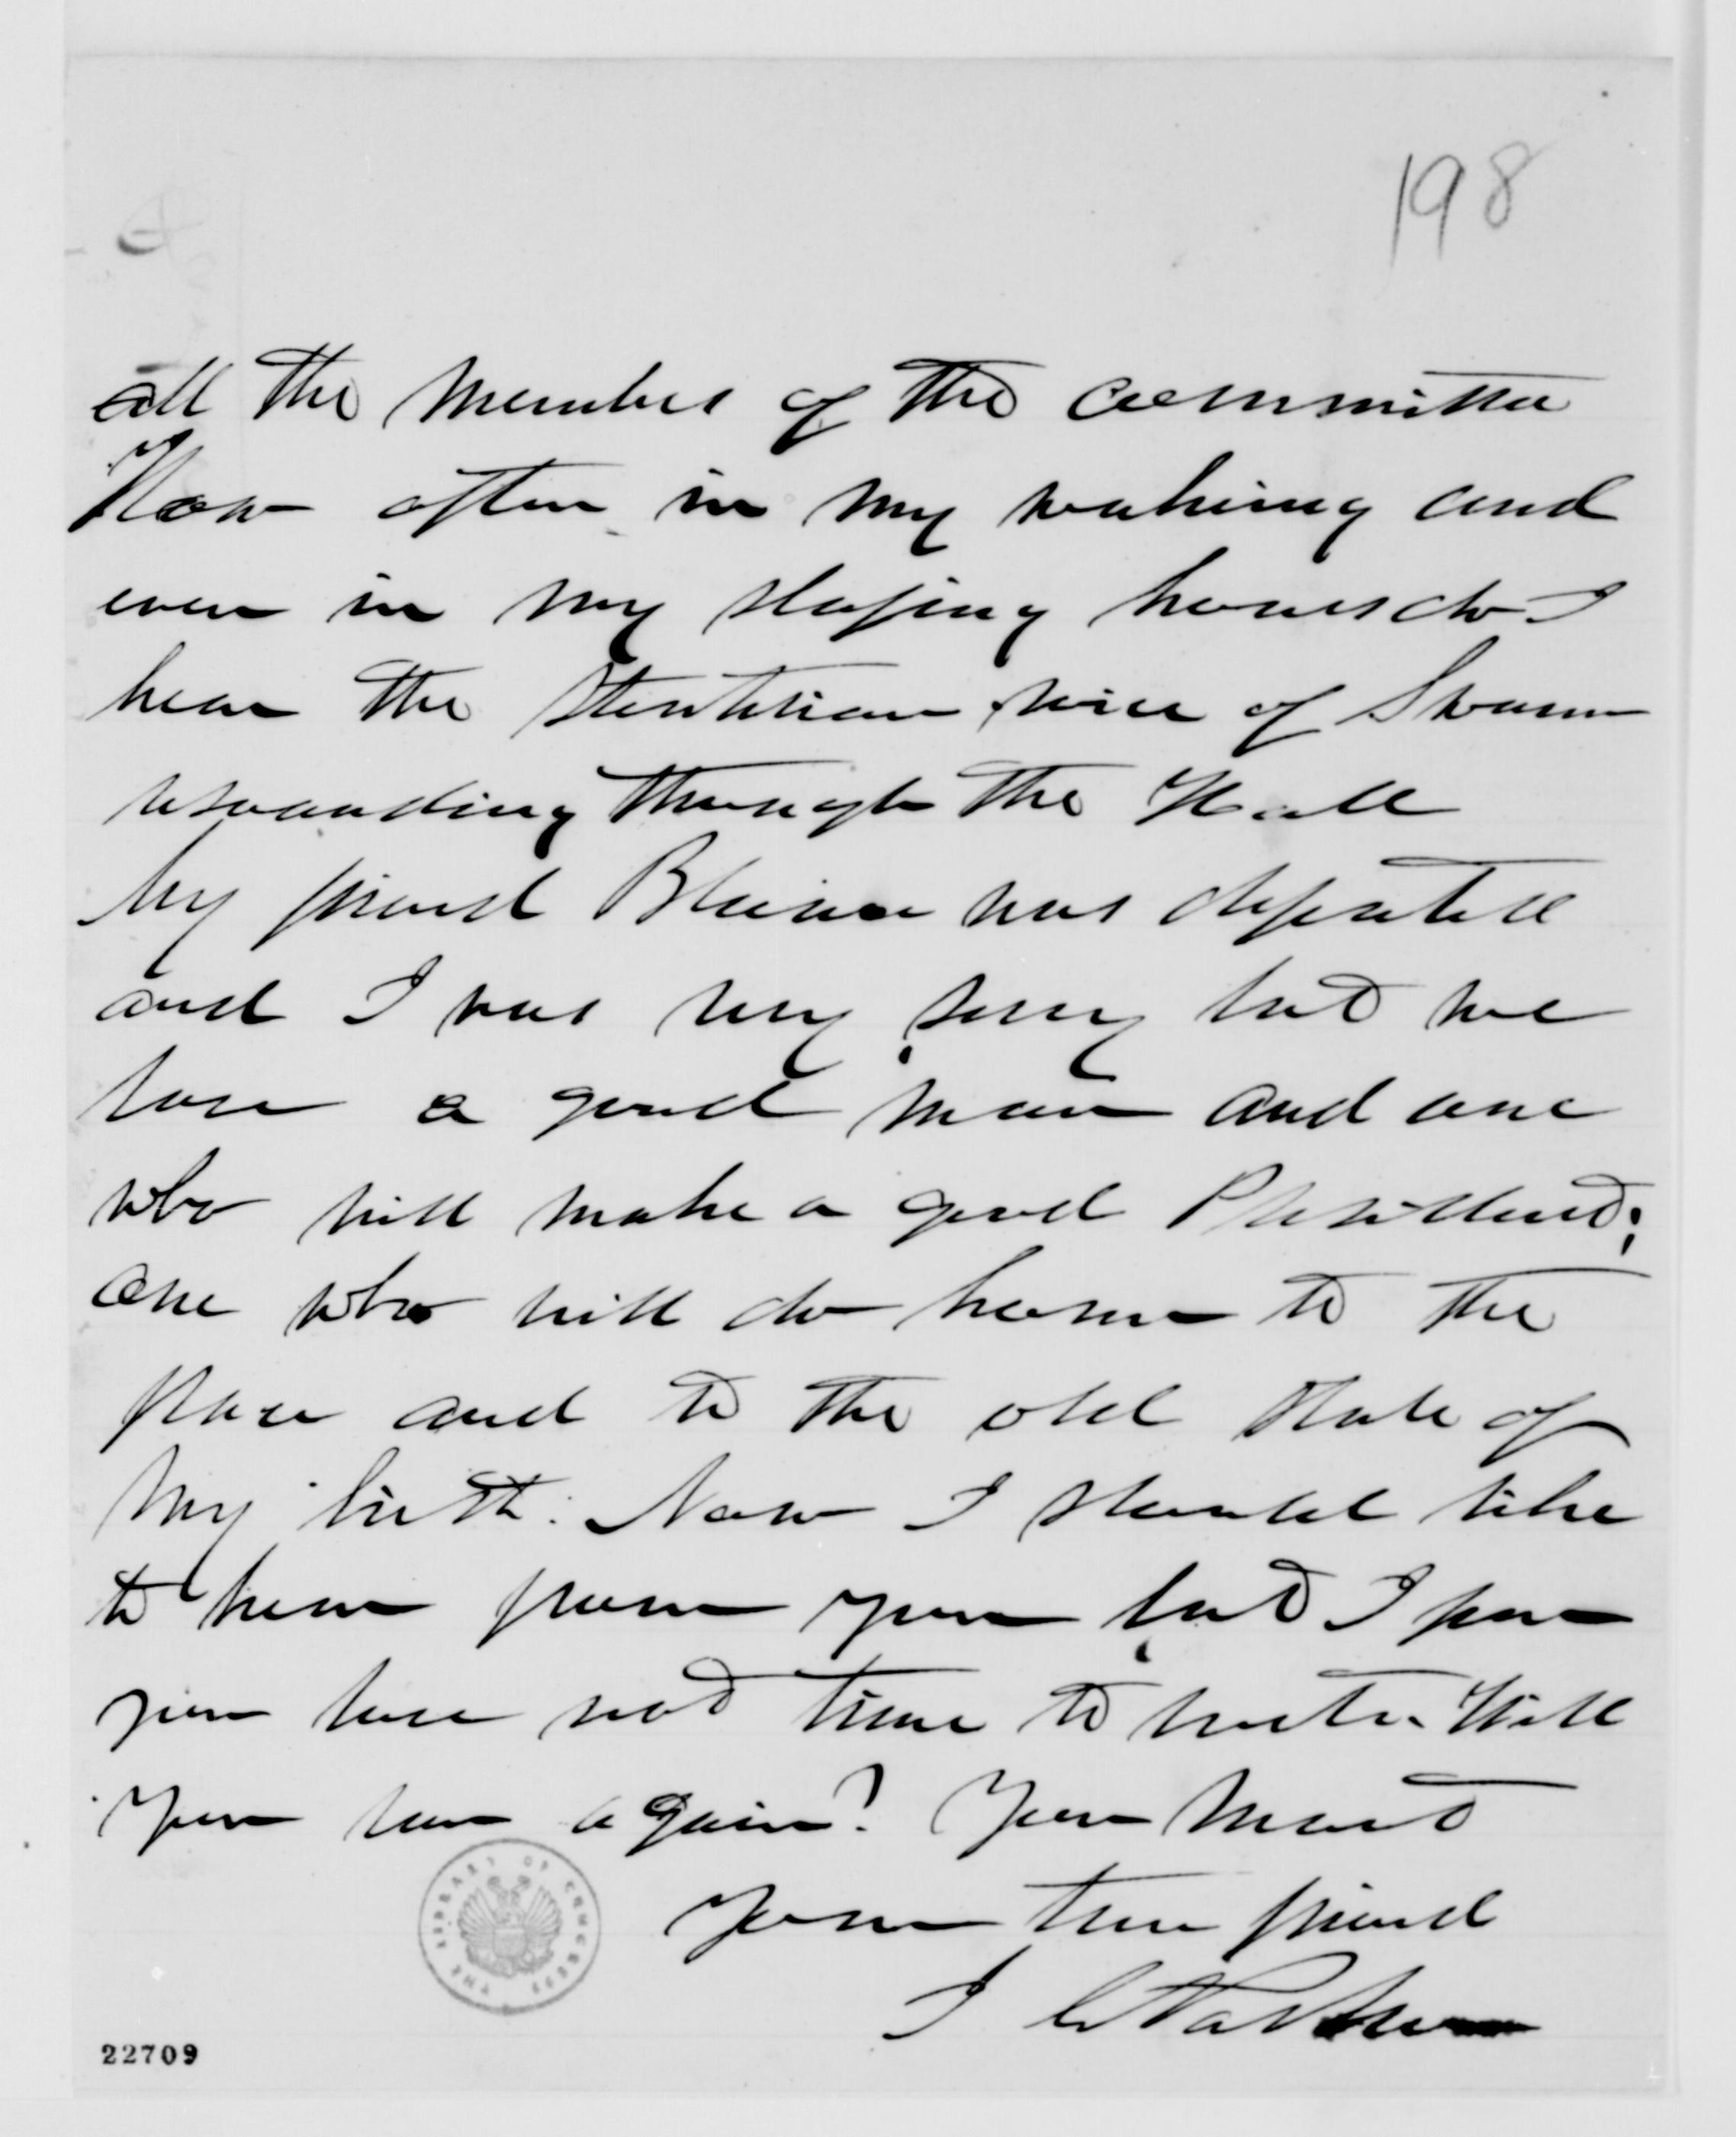 198
all the members of the committee
How often in my waking and
even in my sleeping hours do I
hear the stentorian voice of Swann
resounding through the Hall
My friend Blaine was defeated
and I was very sorry but we
have a good man and one
who will make a good President;
one who will do honor to the
place and to the old State of
my birth. Now I should like
to hear from you but I fear
you have not time to write. Will
you run again? You must
Your true friend
I C Parker
THE LIBRARY OF CONGRESS
22709